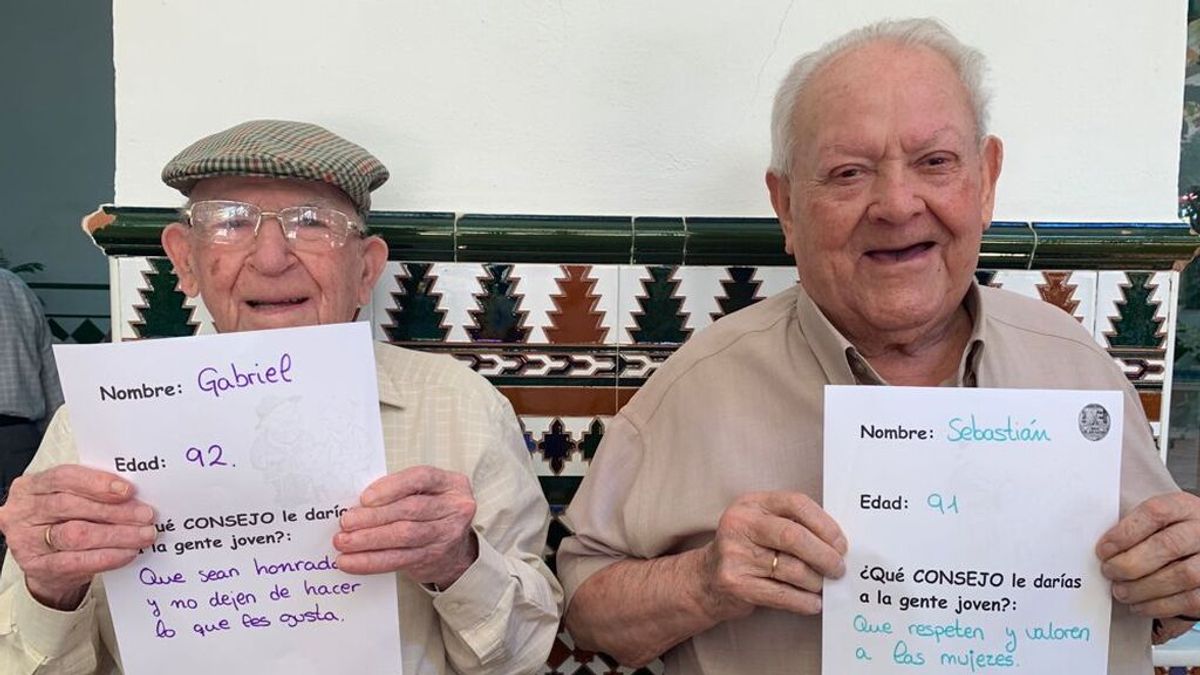 Nombre: Gabriel
Edad: 92.
¿Qué CONSEJO le darías
a la gente joven?:
Que sean honrados
y no dejen de hacer
lo que les gusta.
Nombre: Sebastián
Edad: 91
¿Qué CONSEJO le darías
a la gente joven?:
Que respeten y valoren
a las mujeres.